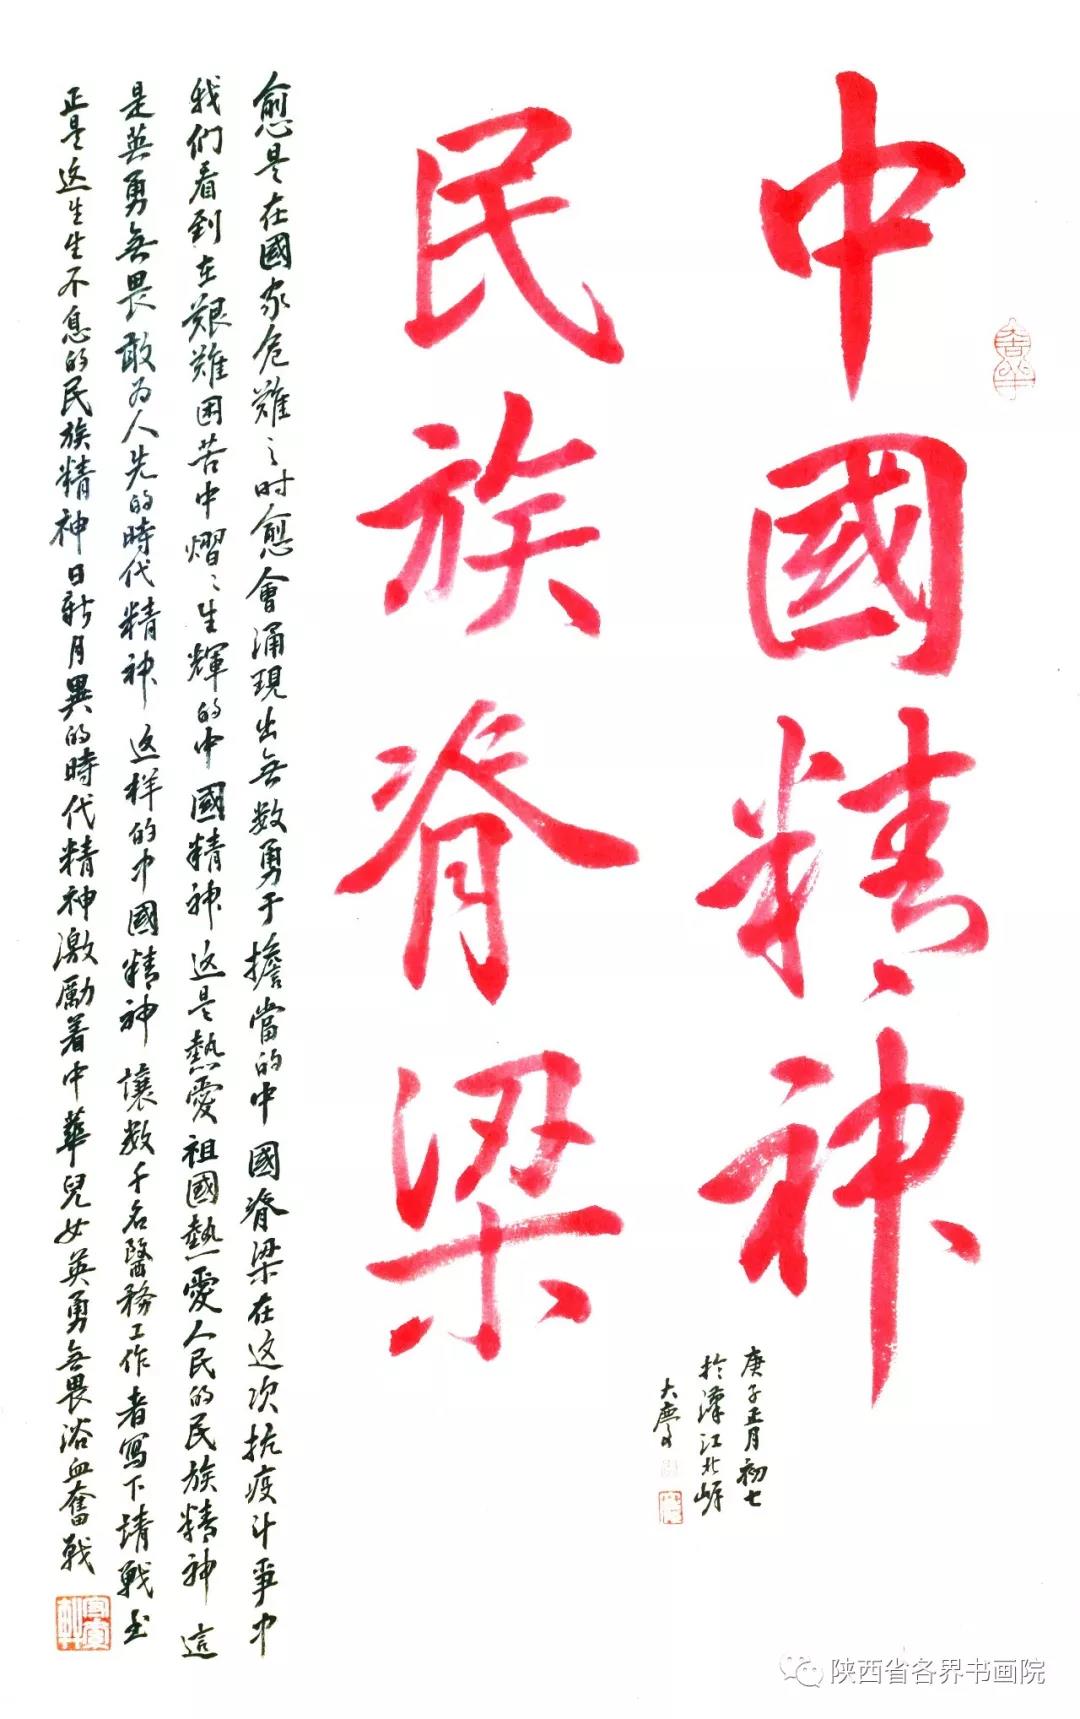 中國精神
民族脊梁
庚子正月初七
於漢江北岸
大慶
愈是在國家危難之时愈會涌現出無数勇于擔當的中國脊梁在这次抗疫斗爭中
我们看到在艱難困苦中熠〻生輝的中國精神这是熱愛祖國熱愛人民的民族精神這
是英勇無畏敢为人先的時代精神这样的中國精神讓数千名醫務工作者写下請戰书
正是这生生不息的民族精神日新月異的時代精神激勵着中華兒女英勇無畏浴血奮戰
陕西省各界书画院